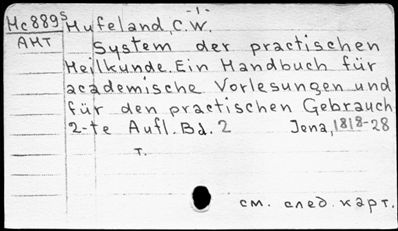 -1-
Нс889s Hufeland, C.W.
АНТ System der practischen
Heilkunde. Ein Handbuch für
academische Vorlesungen und
für den practischen Gebrauch
2-te Aufl. Bd. 2 Jena, 1818-28
т.
см. след. карт.